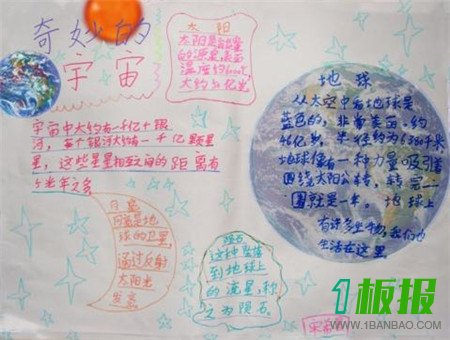 奇妙的
宇宙
太阳
太阳是能量
的源泉,表面
温度约6000℃
大约50亿岁
宇宙中大约有一千亿个银
河,每个银河大约有一千亿颗星
星,这些星星相互之间的距离有
5光年之多
月亮
月亮是地
球的卫星,
通过反射
太阳光
发亮
陨石
这种坠落
到地球上
的流星,称
之为陨石。
地球
从太空中看地球是
蓝色的,非常美丽。约
46亿岁,半径约为6380千米
地球像有一种力量吸引着
围绕太阳公转,转完一
圈就是一年。地球上
有许多生物,我们也
生活在这里
1板报
WWW.1BANBAO.COM